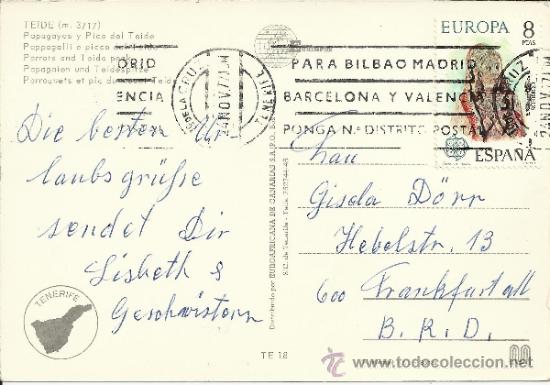 TEIDE (m. 3717)
Papagayos y Pico del Teide
Pappagalli e picco del Teide
Parrots and Teide
Papageien und Teidespitze
Perroquets et pic du Teide
EUROPA 8
PTAS
ESPAÑA
PARA BILBAO MADRID
BARCELONA Y VALENCIA
PONGA N.º DISTRITO POSTAL
DE LA CRUZ
NOV 77
TENERIFE
Die besten Ur-
laubsgrüße
sendet Dir
Lisbeth &
Geschwistern
Frau
Gisela Dörr
Hebelstr. 13
600 Frankfurt
B. R. D.
Distribuido por EUROAFRICANA DE CANARIAS S.A.
TENERIFE
TE 18
www.todocoleccion.net